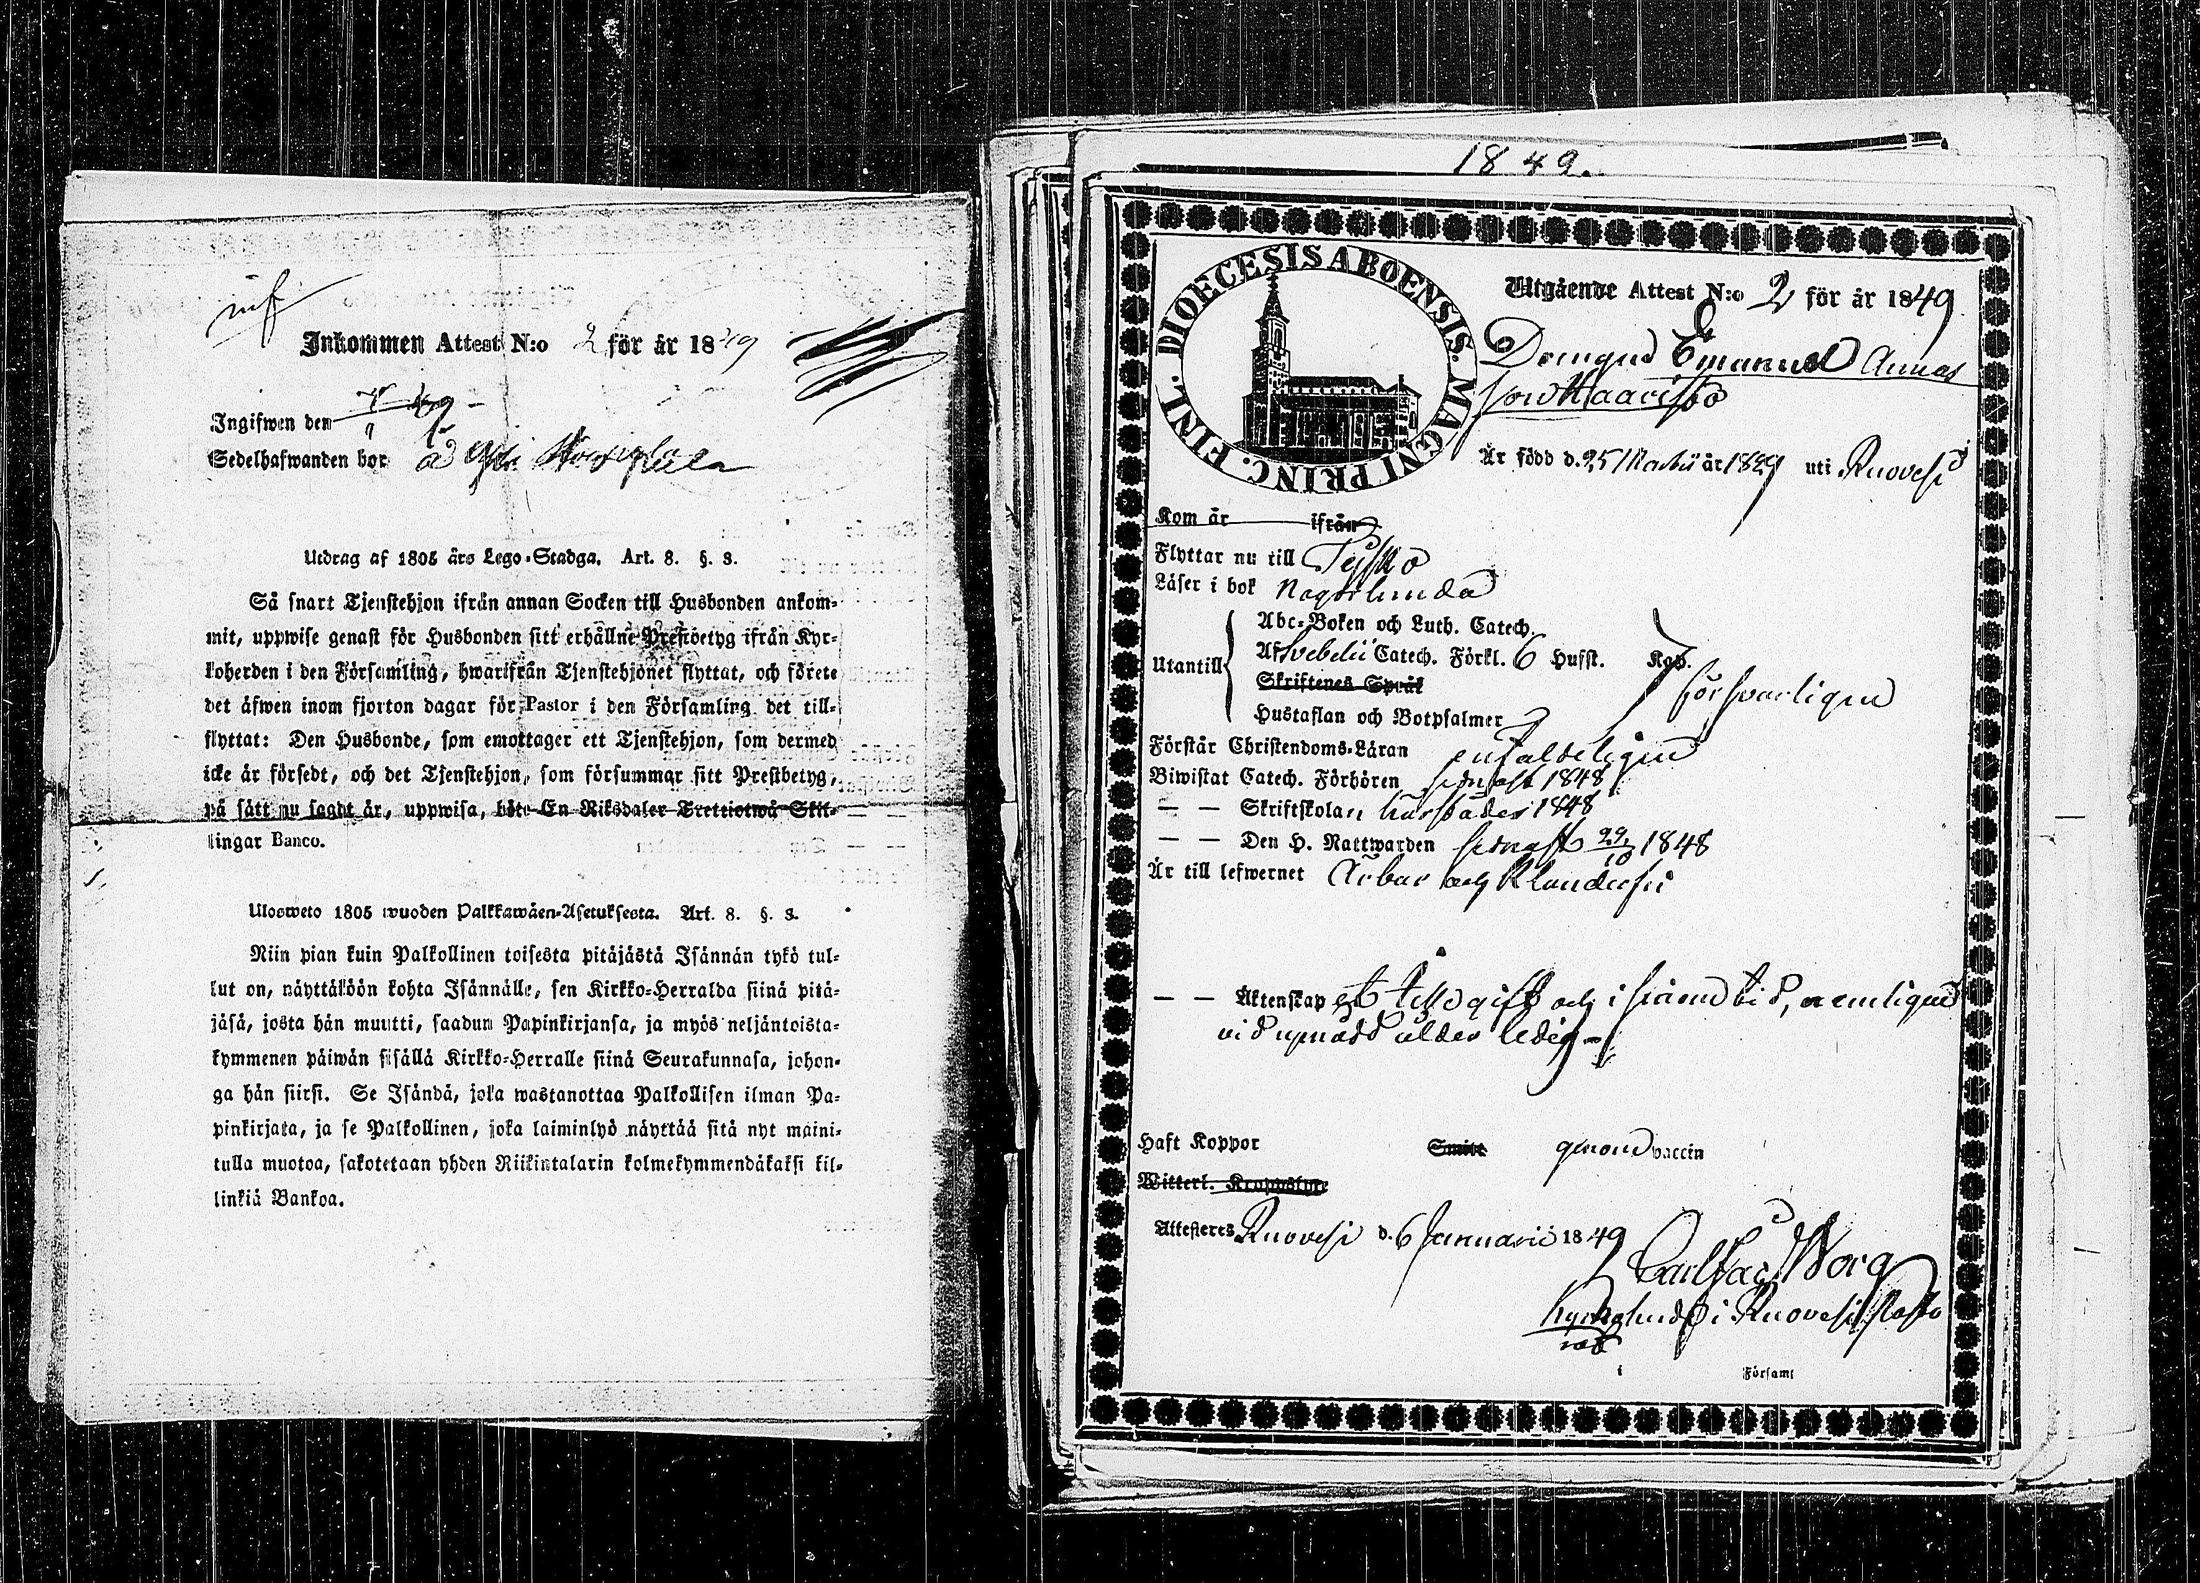 Inkommen Attest N:o 2 för år 1849
Ingifwen den
Sedelhafwanden bor å
Utdrag af 1805 års Lego-Stadga. Art. 8. §. 3.
Så snart Tjenstehjon ifrån annan Socken till Husbonden ankom-
mit, uppwise genast för Husbonden sitt erhållne Prestbetyg ifrån Kyr-
koherden i den Församling, hwarifrån Tjenstehjonet flyttat, och förete
det äfwen inom fjorton dagar för Pastor i den Församling det till-
flyttat: Den Husbonde, som emottager ett Tjenstehjon, som dermed
icke är försedt, och det Tjenstehjon, som försummar sitt Prestbetyg,
på sätt nu sagdt är, uppwisa, böte En Riksdaler Trettiotwå Skil-
lingar Banco.
Ulosweto 1805 wuoden Palkkawäen-Asetuksesta. Art. 8. §. 3.
Niin pian kuin Palkollinen toisesta pitäjästä Isännän tykö tul-
lut on, näyttäköön kohta Isännälle, sen Kirkko-Herralda siinä pitä-
jäsä, josta hän muutti, saadun Papinkirjansa, ja myös neljäntoista-
kymmenen päiwän sisällä Kirkko-Herralle siinä Seurakunnasa, johon-
ga hän siirsi. Se Isändä, joka wastanottaa Palkollisen ilman Pa-
pinkirjata, ja se Palkollinen, joka laiminlyö näyttää sitä nyt maini-
tulla muotoa, sakotetaan yhden Riikintalarin kolmekymmendäkaksi kil-
linkiä Bankoa.
1849.
FINL. DIOECESIS ABOENSIS. MAGNI PRINC.
Utgående Attest N:o 2 för år 1849
Drängen Emanuel Annas
son Haaristo
Är född d. 25 Martii år 1829 uti Ruovesi
Kom år ifrån
Flyttar nu till
Läser i bok någorlunda
Utantill
Abc-Boken och Luth. Catech.
Af Svebelii Catech. Förkl. 6 Hufst. Kap.
Skriftenes Språk
försvarligen
Hustaflan och Botpsalmer
Förstår Christendoms-Läran enfaldeligen
Biwistat Catech. Förhören senast 1848
— — Skriftskolan härstädes 1848
— — Den H. Nattwarden senast 29/10 1848
Är till lefwernet Ärbar och Klanderfri
— — Äktenskap ej tillgift och i sinom tid, nemligen
vid upnådd ålder ledig
Haft Koppor Smitt genom vaccin
Witterl. Kroppslyte
Attesteres Ruovesi d. 6 Januarii 1849
Carl Jac. Borg
Kyrkoherde i Ruovesi Pasto
rat
i Församl